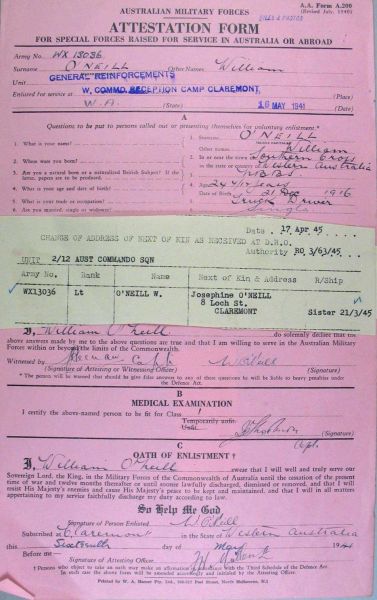 AUSTRALIAN MILITARY FORCES
A.A. Form A.200
(Revised July, 1940)
ATTESTATION FORM
FOR SPECIAL FORCES RAISED FOR SERVICE IN AUSTRALIA OR ABROAD
Army No. WX 13036
Surname O'NEILL Other Names William
Unit GENERAL REINFORCEMENTS
Enlisted for service at W. COMMD. RECEPTION CAMP CLAREMONT, (Place)
W.A. (State) 16 MAY 1941 (Date)
A
Questions to be put to persons called out or presenting themselves for voluntary enlistment.*
1. What is your name?
1. Surname O'NEILL
Other names William
2. Where were you born?
2. In or near the town of Southern Cross
in the state or country of Western Australia
3. Are you a natural born or a naturalized British Subject? If the latter, papers are to be produced.
3. N.B.B.S.
4. What is your age and date of birth?
4. Age 24 4/12 years
Date of Birth 21 Dec 1916
5. What is your trade or occupation?
5. Truck Driver
6. Are you married, single or widower?
6. Single
Date 17 Apr 45
CHANGE OF ADDRESS OF NEXT OF KIN AS RECEIVED AT D.R.O.
Authority RO 3/63/45
UNIT 2/12 AUST COMMANDO SQN
Army No. Rank Name Next of Kin & Address R/Ship
WX13036 Lt O'NEILL W. Josephine O'NEILL
8 Loch St,
CLAREMONT Sister 21/3/45
I, William O'Neill do solemnly declare that the
above answers made by me to the above questions are true and that I am willing to serve in the Australian Military
Forces within or beyond the limits of the Commonwealth.
Witnessed by W O'Neill
(Signature of Attesting or Witnessing Officer) (Signature)
* The person will be warned that should he give false answers to any of these questions he will be liable to heavy penalties under
the Defence Act.
B
MEDICAL EXAMINATION
I certify the above-named person to be fit for Class I
Temporarily unfit.
Unfit.
(Signature)
Capt.
C
OATH OF ENLISTMENT †
I, William O'Neill swear that I will well and truly serve our
Sovereign Lord, the King, in the Military Forces of the Commonwealth of Australia until the cessation of the present
time of war and twelve months thereafter or until sooner lawfully discharged, dismissed or removed, and that I will
resist His Majesty's enemies and cause His Majesty's peace to be kept and maintained, and that I will in all matters
appertaining to my service faithfully discharge my duty according to law.
So Help Me God
Signature of Person Enlisted W O'Neill
Subscribed at Claremont in the State of Western Australia
this Sixteenth day of May 1941
Before me—
Signature of Attesting Officer
† Persons who object to take an oath may make an affirmation in accordance with the Third Schedule of the Defence Act.
In such case the above form will be amended accordingly and initialed by the Attesting Officer.